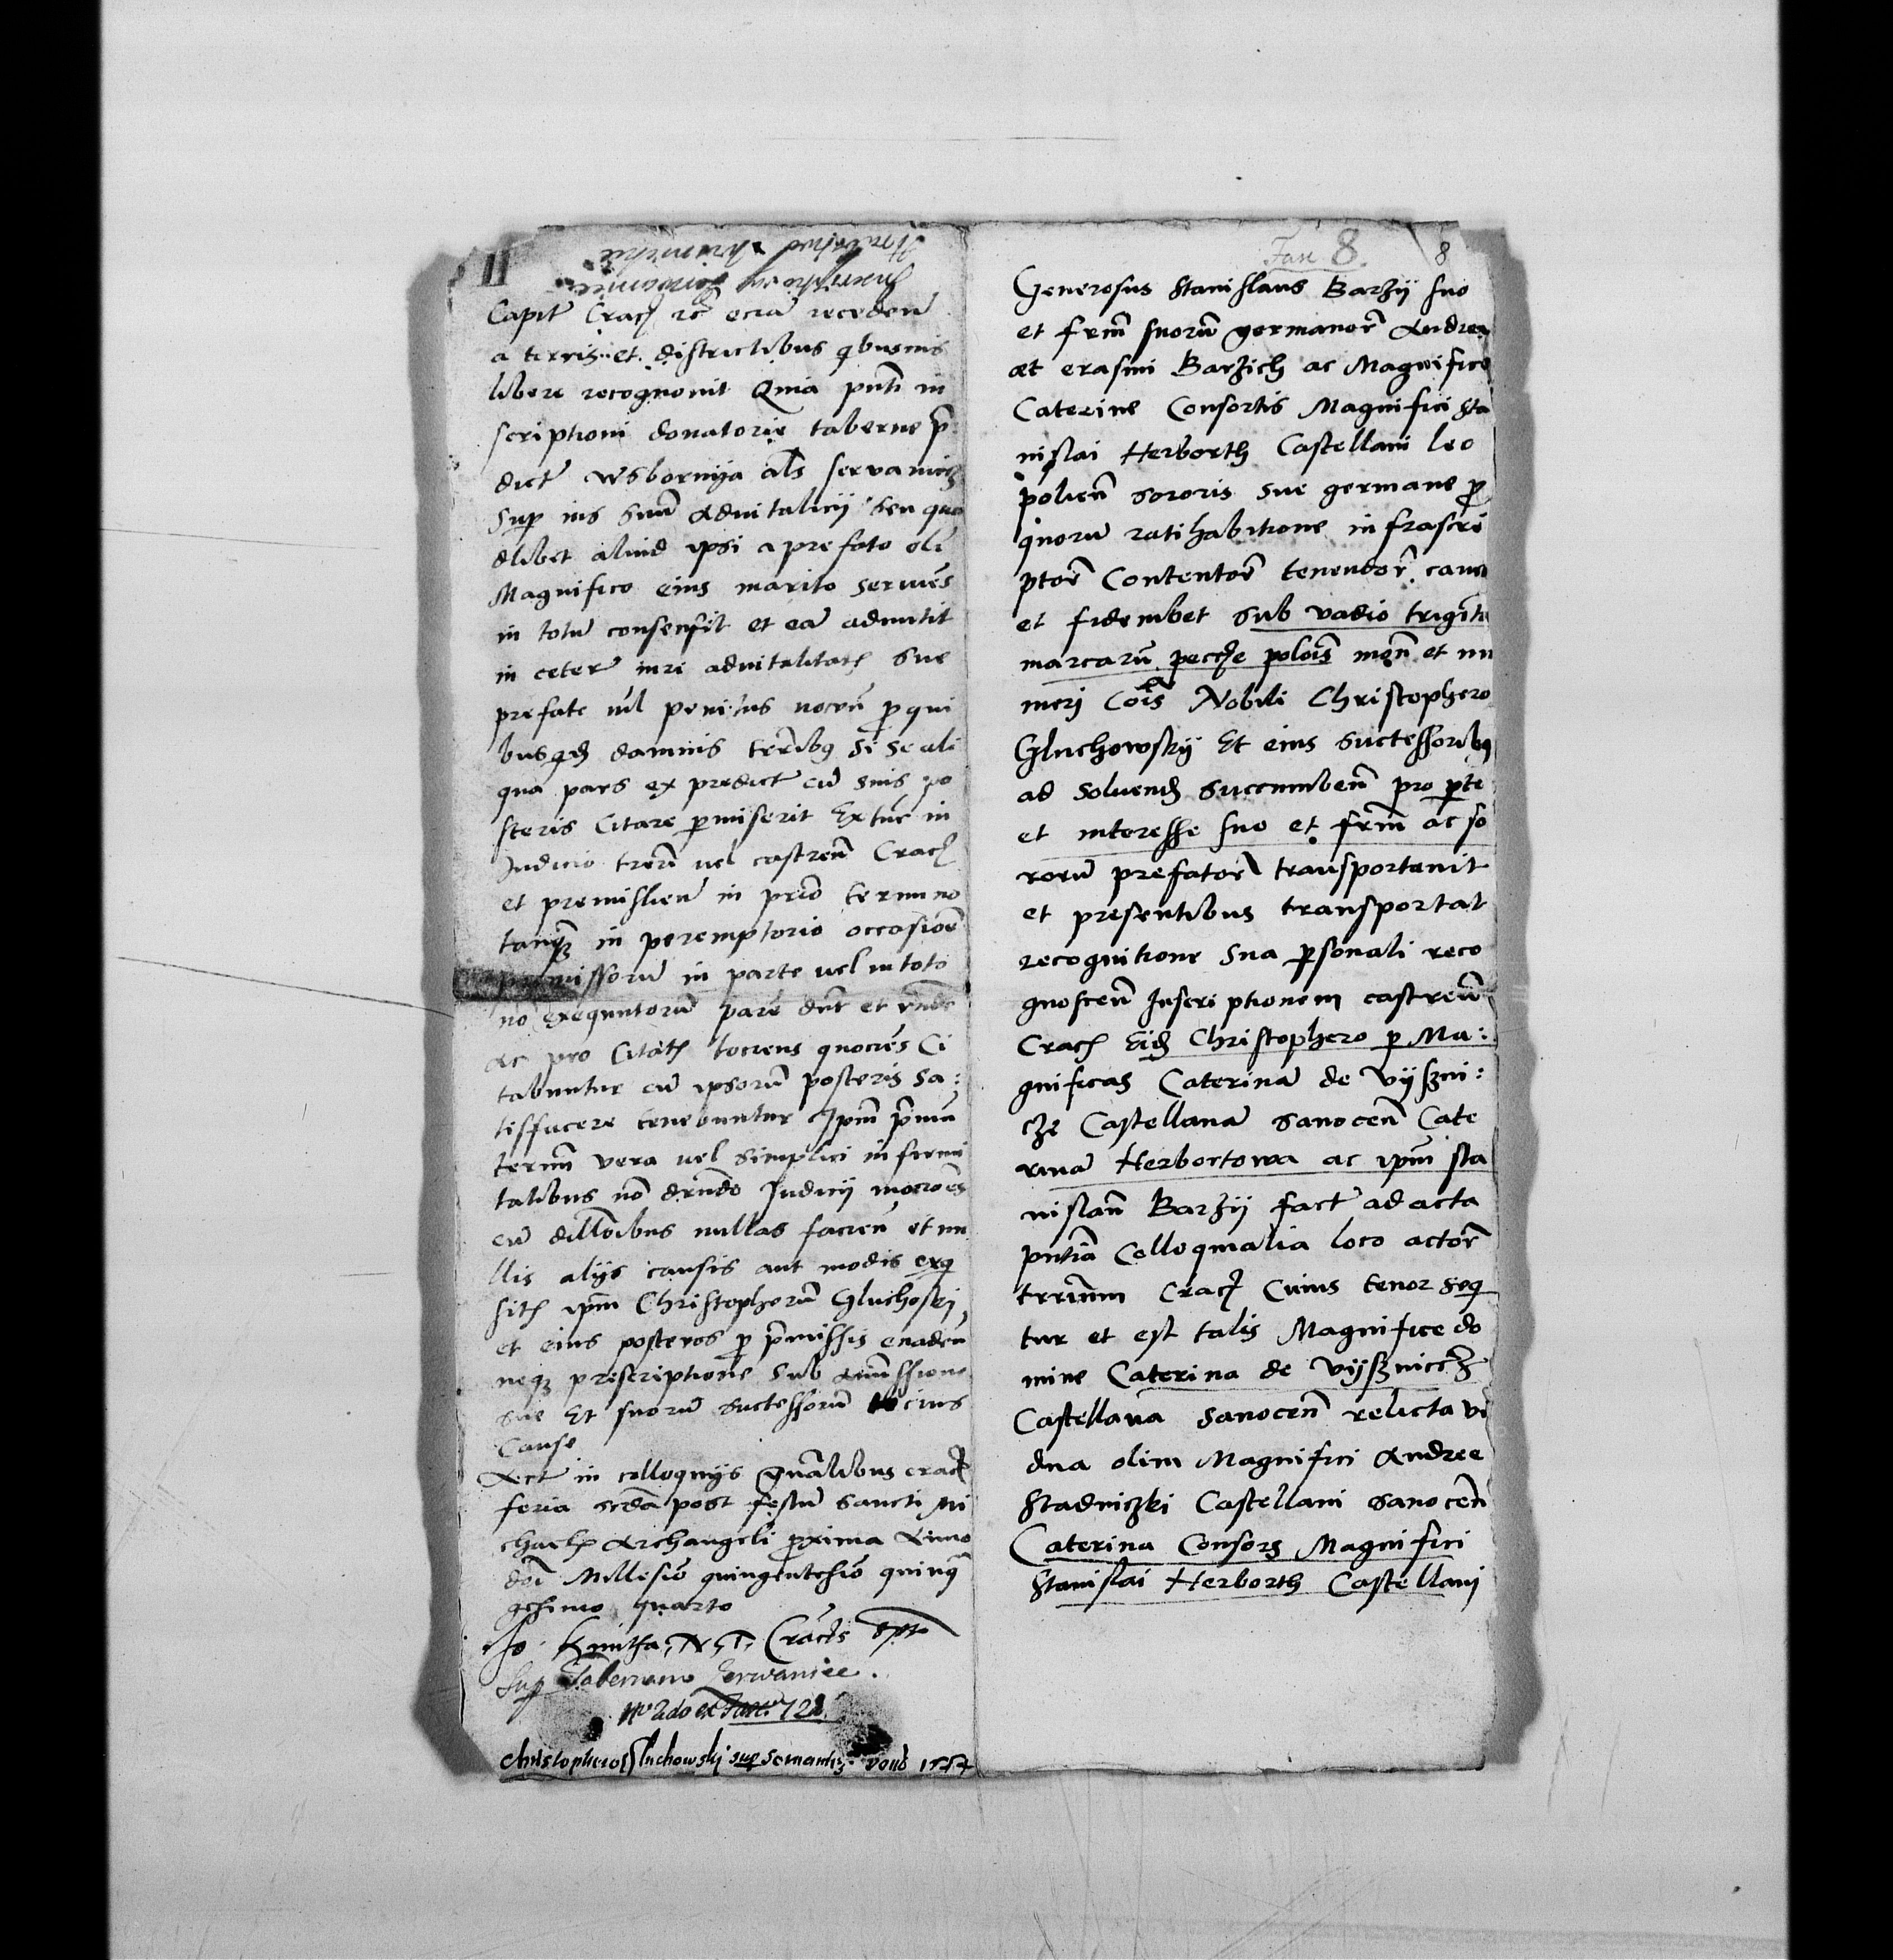 II
Capit Cracħ etc̄ eciā recedeñ
a terris et districtibus q̄busuis
libere recognouit Quia pn̄ti in
scriptioni donatorie taberne p̄
dict wsbornija al̄s servanicz
Sup ius suū Aduitalicij seu quo
dlibet aliud ipsi a prefato oli
Magnifico eius marito seruiēs
in totū consensit et eā admitit
in ceter iuri aduitalitatis sue
prefate nil penitus noceñ p qui
busqȝ damnis terribȝ Si se ali
qua pars ex predict cū suis po
steris Citare pmiserit Extūc in
Judicio trerī uel castreñ Cracħ
et premislieñ in prīo termino
tanqȝ in peremptorio occasiōe
premissorū in parte uel in toto
nō exequutorū parē dn̄t et rn̄dē
Ac pro Citātꝭ tociens quocies Ci
tabuntur cū ipsorū posteris Sa:
tisfacere tenebuntur Ip̄m p̄mū
termīn vera uel simplici infirmi
talibus nō dicēdo Judicij mocioēs
cū dill̄oibus nullas facieñ et nu
llis alijs causis aut modis exq
sitꝭ ip̄m Christopherū Gluchoski
et eius posteros p p̄missis euadeñ
neqȝ prescriptione Sub Amissione
sue Et suorū successorū tocius
Cause
Act in colloquijs Gn̄alibus cracħ
feria scdā post festū Sancti Mi
chaelꝭ Archangeli pxima Anno
dn̄i Millesīo quingentesīo quinq
gesimo quarto
Jo. Kmitha, N, T, Cracēs spt
Sup Tabernam Serwaniec.
Christopheros Gluchowski sup Sernanicz 1554
Fasc 8. 8
Generosus Stanislaus Barzij suo
et frm̄ suorū germanor̄ Andree
et erasmi Barzich ac Magnifice
Caterine Consortis Magnifici Sta
nislai Herborth Castellani leo
polieñ sororis sue germane p
quorū ratihabitione infrascri
ptor̄ Contentor̄ tenendor̄ cauet
et fideiubet sub vadio triginta
marcarū pecc̄ie polois moñ et nu
meri Cois Nobili Christophero
Gluchowskij Et eius Successoribȝ
ad soluendꝭ Succumbeñ pro pte
et interesse suo et frm̄ ac so
rorū prefator̄ transportauit
et presentibus transportat
recognitione Sua psonali reco
gnosceñ Inscriptionem castreñ
Cracħ Eidꝭ Christophero p Ma:
gnificas Caterinā de Vyszni:
cze Castellanā Sanoceñ Cate
rinā Herbortowa ac ip̄m sta
nislaū Barzij fact ad acta
pn̄tiā Colloquialia loco actor̄
trriūm Cracħ Cuius tenor seq
tur et est talis Magnifice do
mine Caterina de Vijsznicz
Castellana Sanoceñ relicta vi
dua olim Magnifici Andree
Stadniczki Castellani Sanoceñ
Caterina Consors Magnifici
Stanislai Herborth Castellani